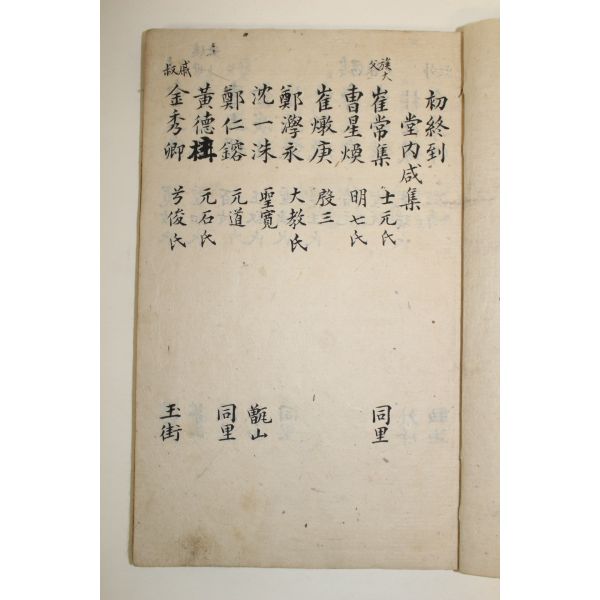 初終到
堂内咸集
族大父 崔常集 士元氏 同里
曺星煥 明七氏
崔燉庚 殷三
鄭澩永 大教氏
沈一洙 聖寛 甑山
鄭仁鎔 元道 同里
黃德 元石氏
戚叔 金秀卿 兮俊氏 玉街